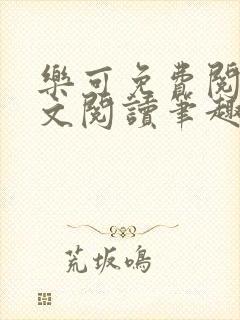 樂可免費閱
文閱讀筆趣
荒坂鳴